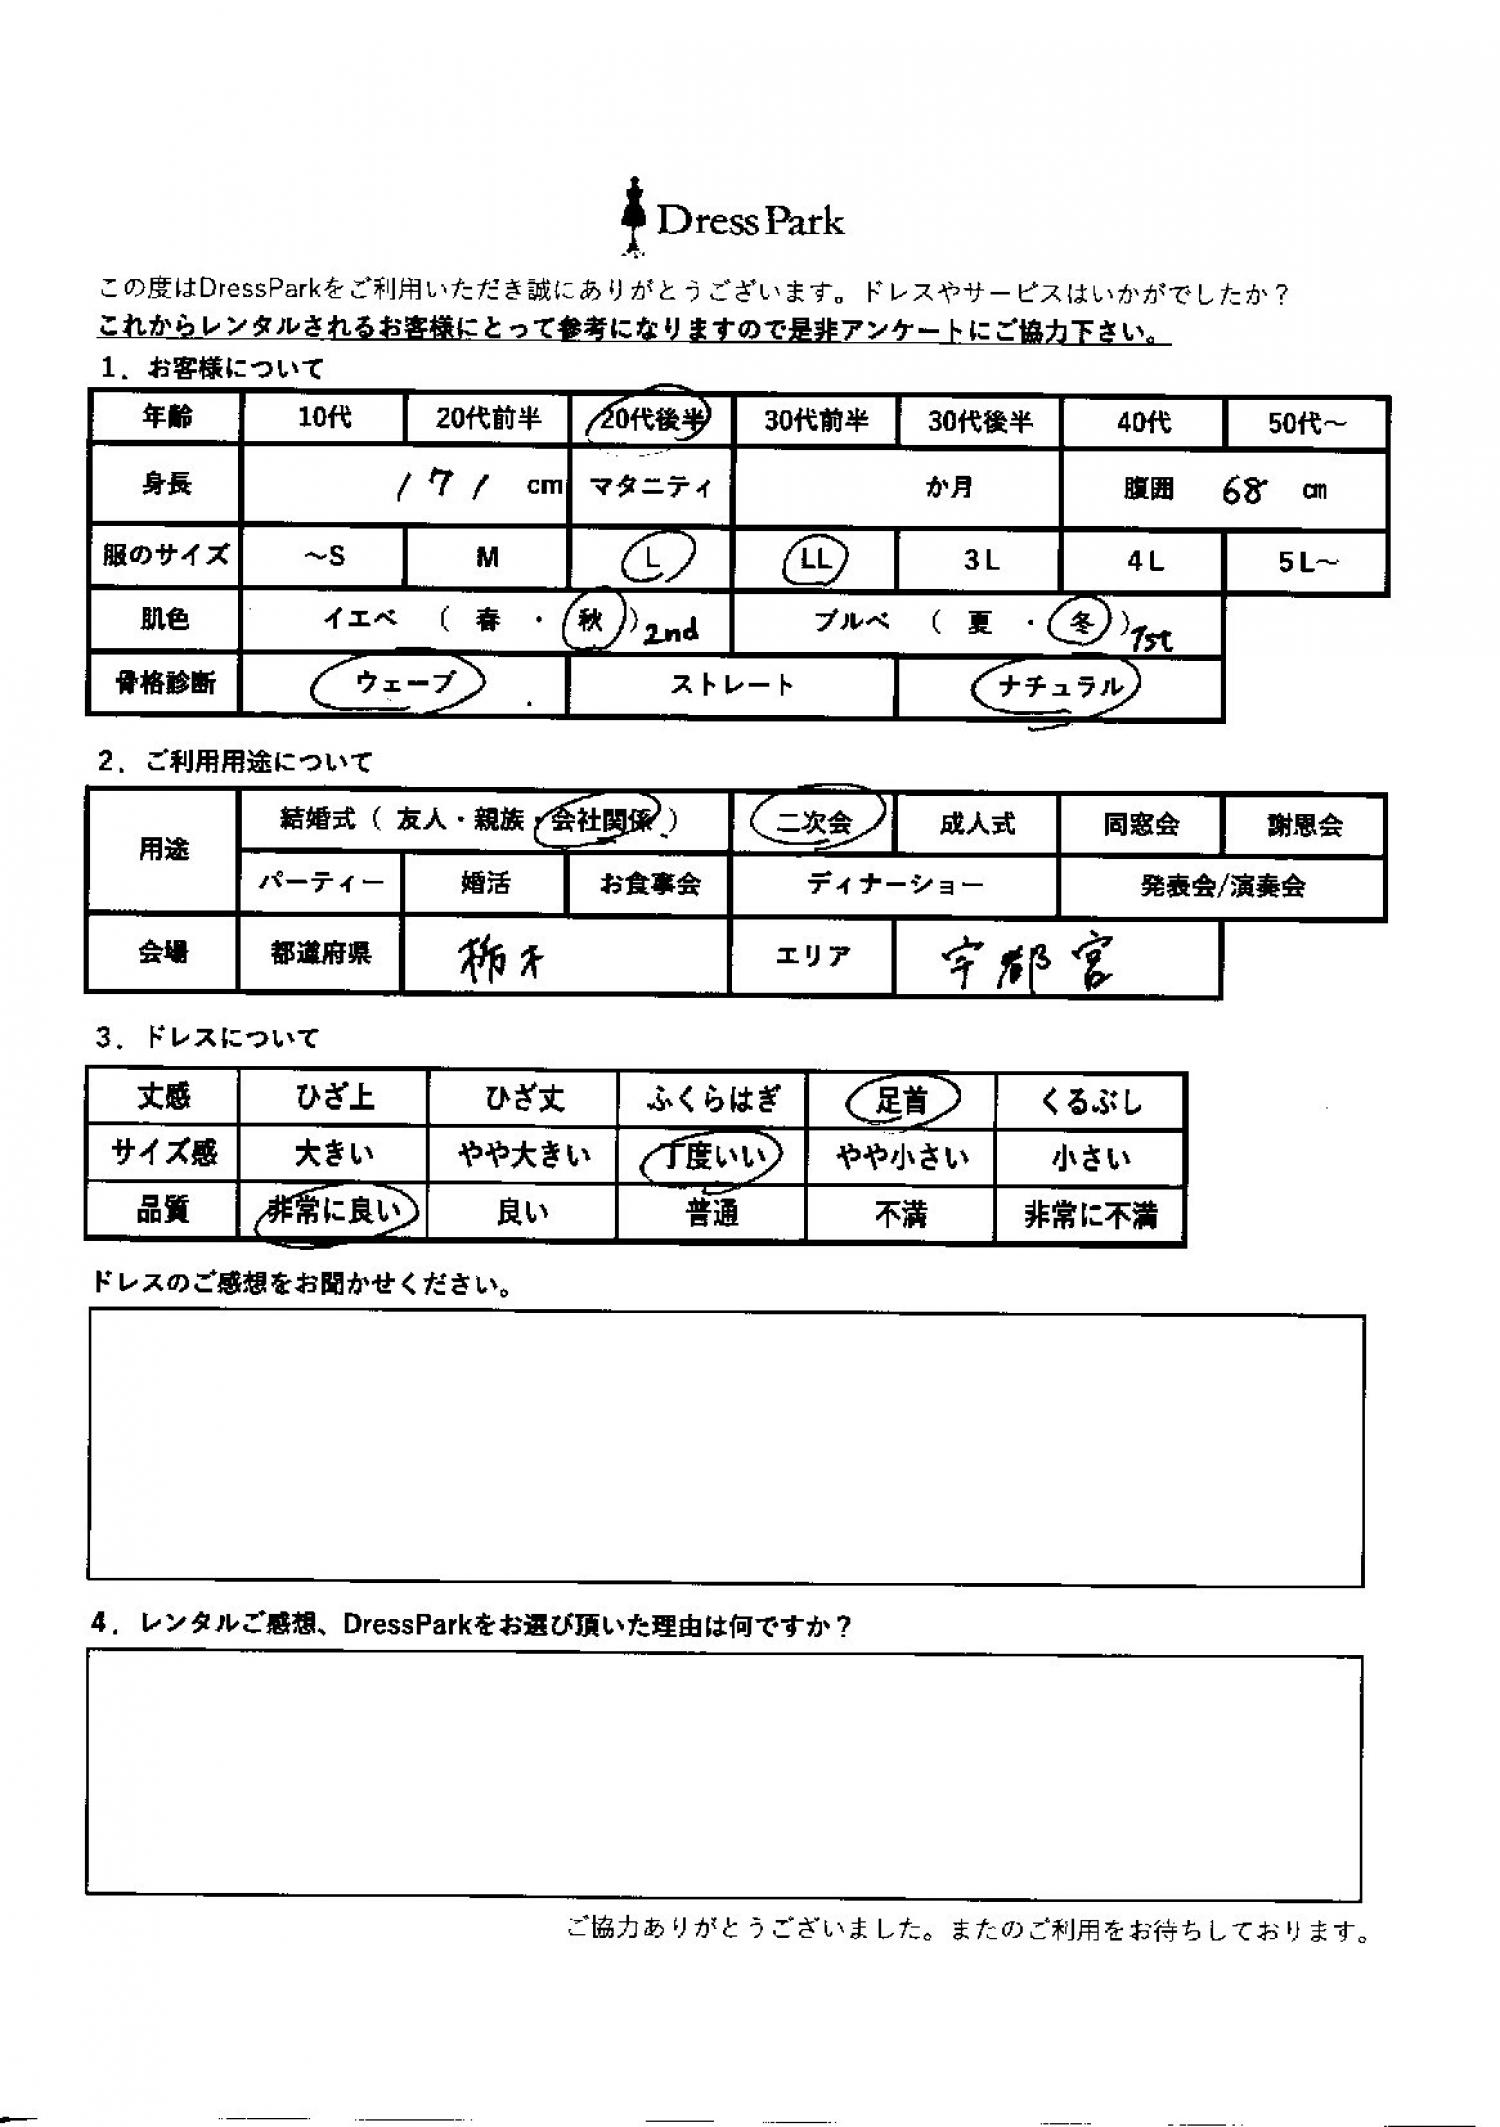 Dress Park
この度はDressParkをご利用いただき誠にありがとうございます。ドレスやサービスはいかがでしたか？
これからレンタルされるお客様にとって参考になりますので是非アンケートにご協力下さい。
1．お客様について
年齢 10代 20代前半 20代後半 30代前半 30代後半 40代 50代～
身長 171 cm マタニティ か月 腹囲 68 cm
服のサイズ ～S M L LL 3L 4L 5L～
肌色 イエベ （ 春 ・ 秋 ） 2nd ブルベ （ 夏 ・ 冬 ） 1st
骨格診断 ウェーブ ストレート ナチュラル
2．ご利用用途について
用途 結婚式（ 友人・親族・会社関係 ） 二次会 成人式 同窓会 謝恩会
パーティー 婚活 お食事会 ディナーショー 発表会/演奏会
会場 都道府県 栃木 エリア 宇都宮
3．ドレスについて
丈感 ひざ上 ひざ丈 ふくらはぎ 足首 くるぶし
サイズ感 大きい やや大きい 丁度いい やや小さい 小さい
品質 非常に良い 良い 普通 不満 非常に不満
ドレスのご感想をお聞かせください。
4．レンタルご感想、DressParkをお選び頂いた理由は何ですか？
ご協力ありがとうございました。またのご利用をお待ちしております。